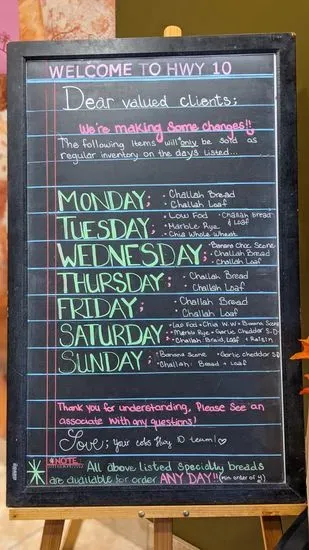 WELCOME TO HWY 10
Dear valued clients;
We're making some changes!!
The following items will only be sold as
regular inventory on the days listed...
MONDAY; • Challah Bread
• Challah Loaf
TUESDAY; • Low Fod • Challah Bread
• Marble Rye & Loaf
• Chia Whole Wheat
WEDNESDAY; • Banana Choc Scone
• Challah Bread
• Challah Loaf
THURSDAY; • Challah Bread
• Challah Loaf
FRIDAY; • Challah Bread
• Challah Loaf
SATURDAY; • Low Fod • Chia W.W • Banana Scone
• Marble Rye • Garlic Cheddar S.D
• Challah: Braid, Loaf + Raisin
SUNDAY; • Banana Scone • Garlic cheddar SD
• Challah: Bread + Loaf
Thank you for understanding, Please see an
associate with any questions!
Love; your cobs Hwy 10 team!
*NOTE: All above listed specialty breads
are available for order ANY DAY!! (min order of